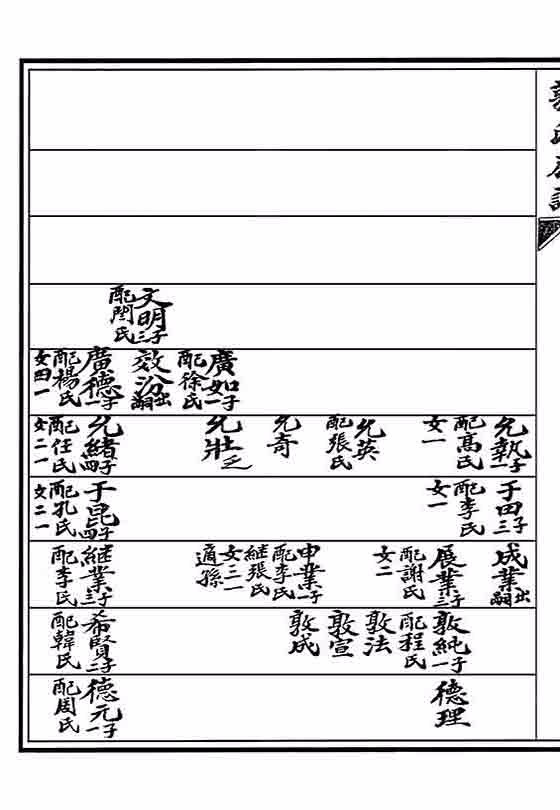 文明三子
配閆氏
廣如一子
配徐氏
效汾出嗣
廣德一子
配楊氏
女四一
允執一子
配高氏
女一
允英
配張氏
允奇
允壯乏
允緒四子
配任氏
女二一
于田三子
配李氏
女一
于昆四子
配孔氏
女二一
成業出嗣
展業三子
配謝氏
女二
申業一子
配李氏
継張氏
女三一
適孫
継業三子
配李氏
敦純一子
配程氏
敦法
敦宣
敦成
希賢二子
配韓氏
德理
德元一子
配周氏